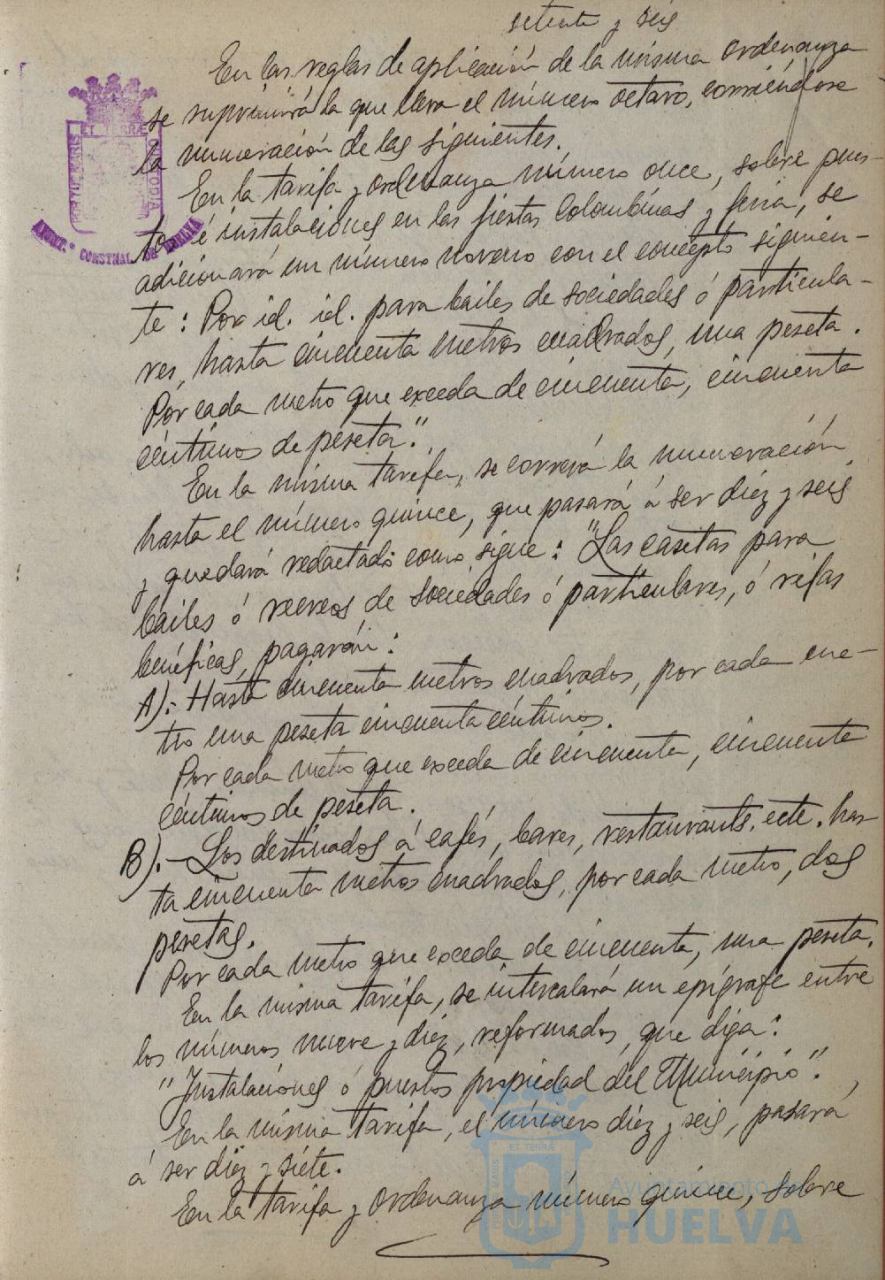 setenta y seis
En las reglas de aplicación de la misma ordenanza
se suprimirá la que lleva el número octavo, corriéndose
la numeración de las siguientes.
En la tarifa y ordenanza número once, sobre pues-
tos é instalaciones en las fiestas Colombinas y feria, se
adicionará un número noveno con el concepto siguien-
te: Por id. id. para bailes de sociedades ó particula-
res, hasta cincuenta metros cuadrados, una peseta.
Por cada metro que exceda de cincuenta, cincuenta
céntimos de peseta".
En la misma tarifa, se correrá la numeración
hasta el número quince, que pasará á ser diez y seis
y quedará redactado como sigue: "Las casetas para
bailes ó recreos de sociedades ó particulares, ó rifas
benéficas, pagarán:
A).- Hasta cincuenta metros cuadrados, por cada me-
tro una peseta cincuenta céntimos.
Por cada metro que exceda de cincuenta, cincuenta
céntimos de peseta.
B).- Los destinados á cafés, bares, restaurants. ecte. has-
ta cincuenta metros cuadrados, por cada metro, dos
pesetas.
Por cada metro que exceda de cincuenta, una peseta.
En la misma tarifa, se intercalará un epígrafe entre
los números nueve y diez, reformados, que diga:
"Instalaciones ó puestos propiedad del Municipio".
En la misma tarifa, el número diez y seis, pasará
á ser diez y siete.
En la tarifa y ordenanza número quince, sobre
AYUNT.º CONSTNAL. DE HUELVA
PORTUS MARIS ET TERRÆ CUSTODIA
Ayuntamiento de
HUELVA